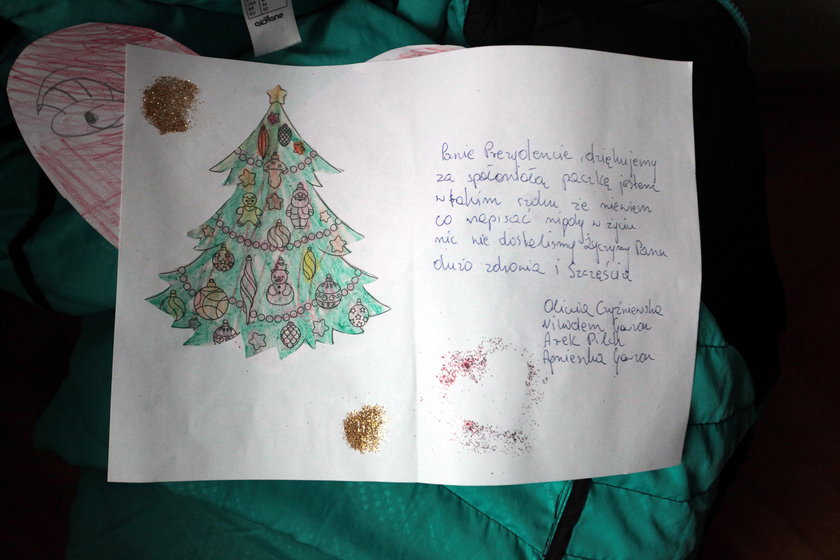 Panie Prezydencie, dziękujemy
za społontołą paczkę jestem
w takim szoku ze niewiem
co napisać nigdy w życiu
nic nie dostaliśmy życzymy Panu
dużo zdrowia i Szczęścia
Oliwia Cyźniewska
Nikodem Gawron
Arek Pilch
Agnieszka Gawron